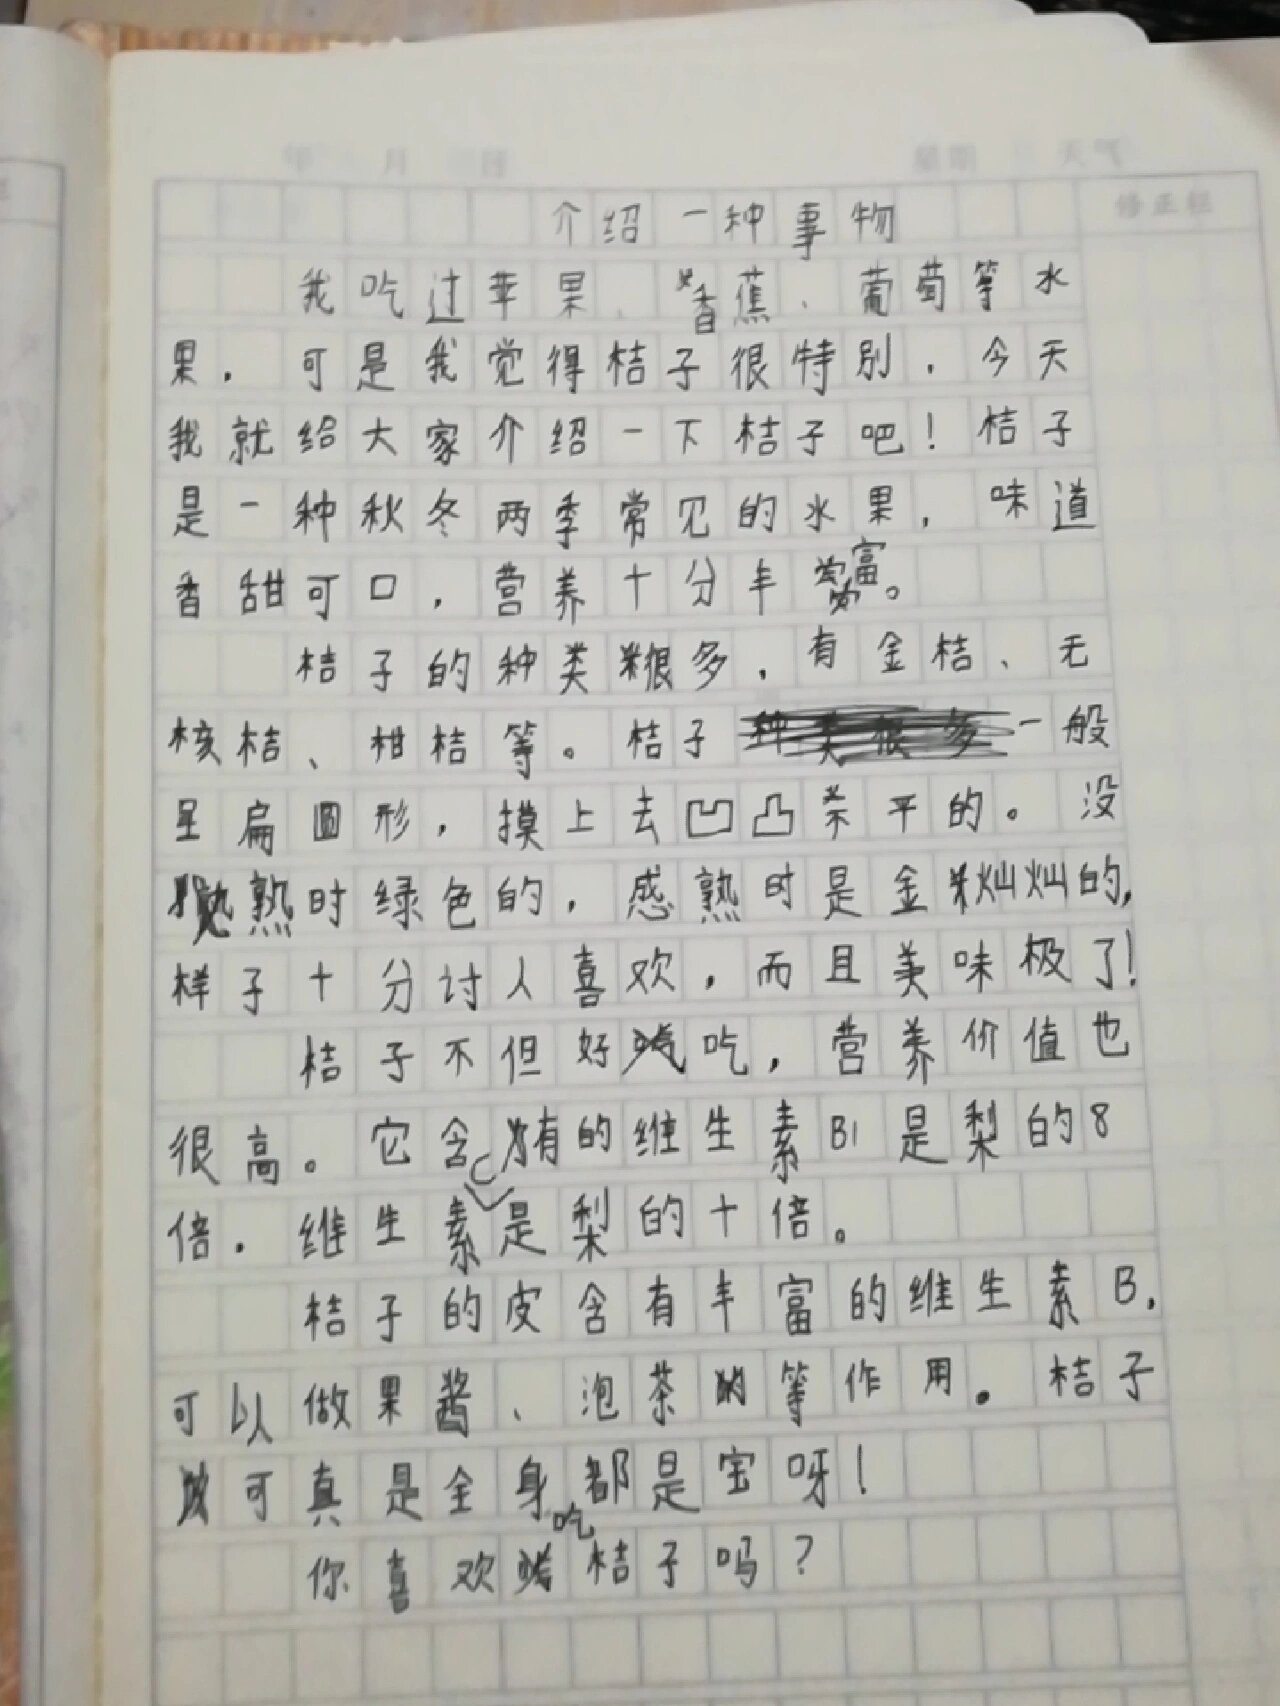 年 月 日 星期 天气
修正栏
介绍一种事物
我吃过苹果、香蕉、葡萄等水
果，可是我觉得桔子很特别，今天
我就给大家介绍一下桔子吧！桔子
是一种秋冬两季常见的水果，味道
香甜可口，营养十分丰富。
桔子的种类很多，有金桔、无
核桔、柑桔等。桔子一般
呈扁圆形，摸上去凹凸不平的。没
熟时绿色的，感熟时是金灿灿的，
样子十分讨人喜欢，而且美味极了！
桔子不但好吃，营养价值也
很高。它含有的维生素B1是梨的8
倍，维生素C是梨的十倍。
桔子的皮含有丰富的维生素B，
可以做果酱、泡茶等作用。桔子
可真是全身都是宝呀！
你喜欢吃桔子吗？